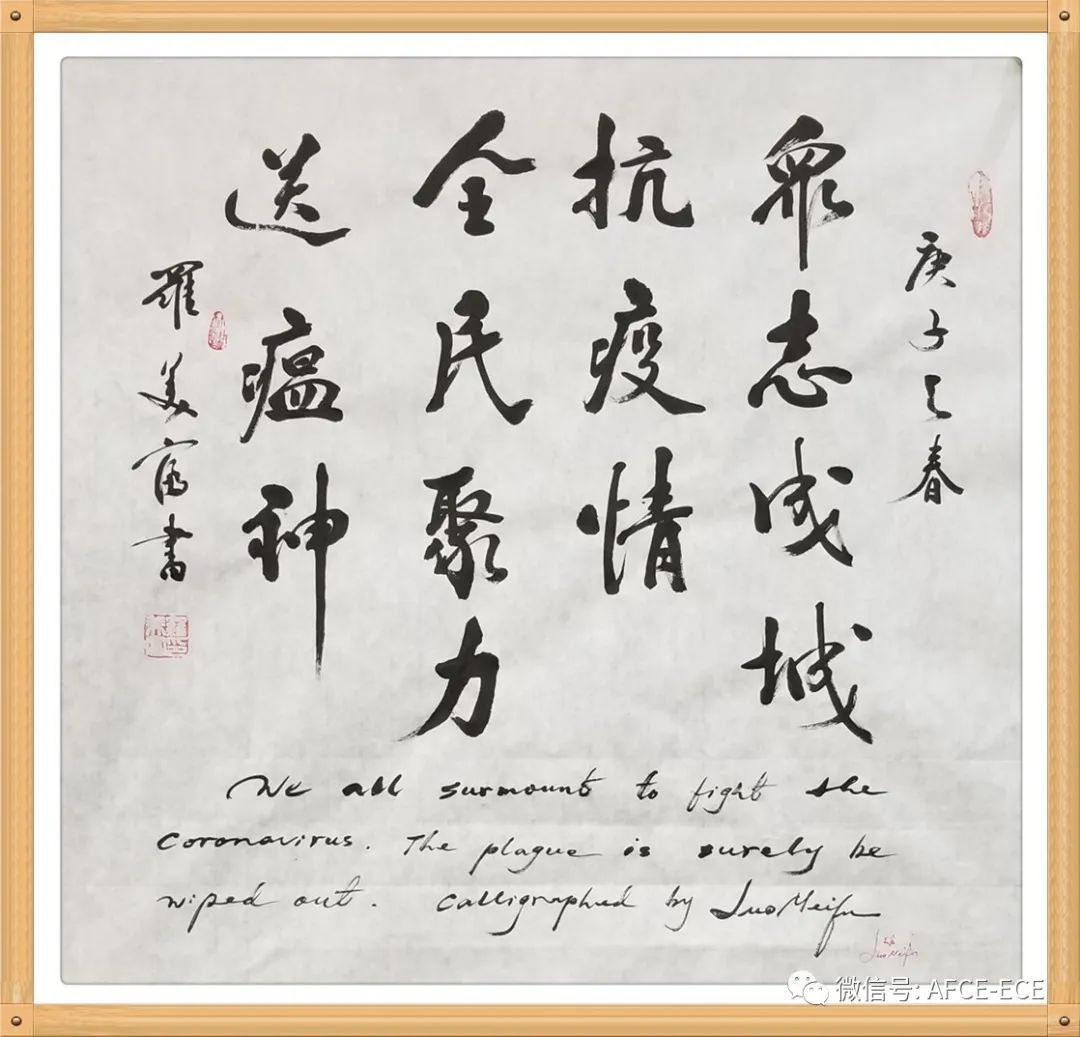 庚子之春
眾志成城
抗疫情
全民聚力
送瘟神
羅美富書
We all surmount to fight the
Coronavirus. The plague is surely be
wiped out. Calligraphed by LuoMeifu
微信号: AFCE-ECE